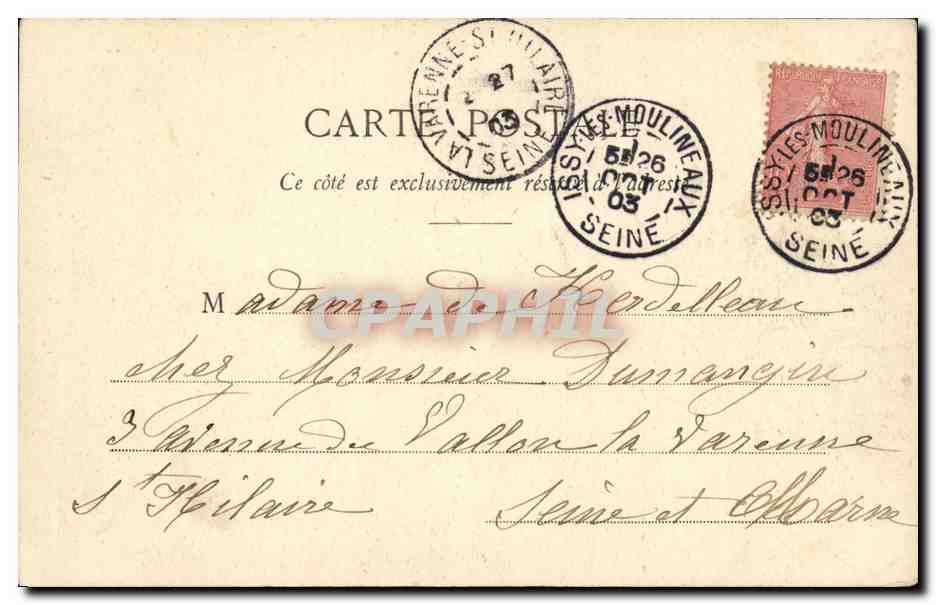 LA VARENNE-ST HILAIRE
27
03
SEINE
RÉPUBLIQUE FRANÇAISE
CARTE POSTALE
ISSY-LES-MOULINEAUX
5E 26
OCT
03
SEINE
ISSY-LES-MOULINEAUX
5E 26
OCT
03
SEINE
Ce côté est exclusivement réservé à l'adresse
Madame de Kerdelleau
CPAPHIL
chez Monsieur Dumangin
3 avenue du Vallon la Varenne
St Hilaire Seine et Marne